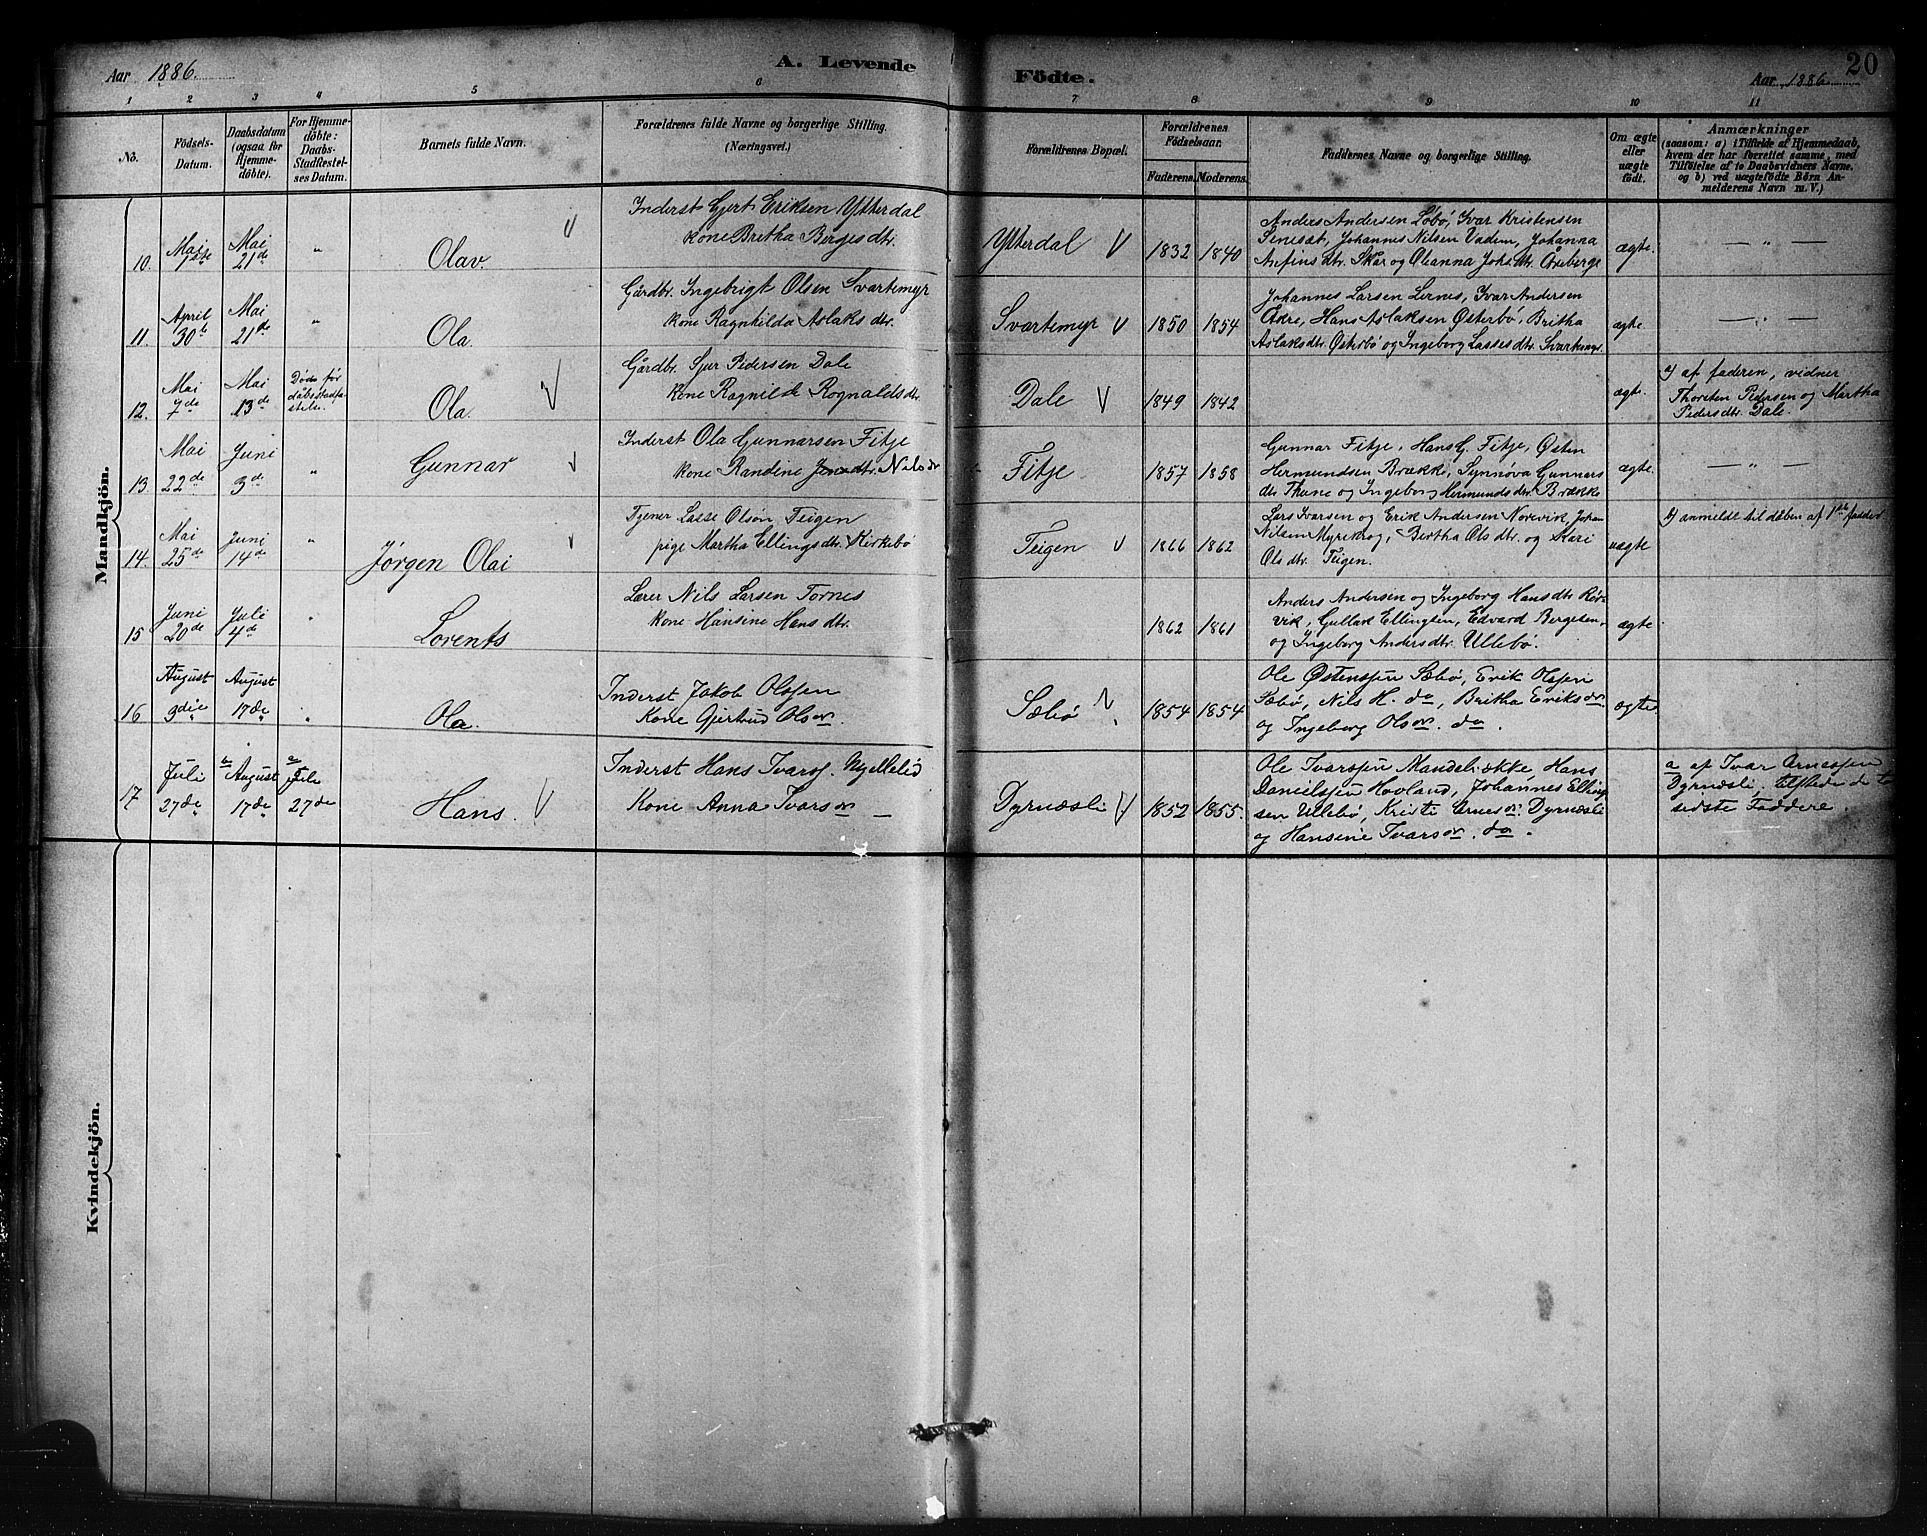 Aar 1886.
A. Levende
Födte.
Aar 1886
20
1 2 3 4 5 6 7 8 9 10 11
No.
Födsels-
Datum.
Daabsdatum
(ogsaa for
Hjemme-
døbte).
For Hjemme-
döbte:
Daabs-
Stadfæstel-
ses Datum.
Barnets fulde Navn.
Forældrenes fulde Navne og borgerlige Stilling.
(Næringsvei.)
Forældrenes Bopæl.
Forældrenes
Födselsaar.
Faderens. Moderens.
Faddernes Navne og borgerlige Stilling.
Om ægte
eller
uægte
födt.
Anmærkninger
(saasom: a) i Tilfælde af Hjemmedaab,
hvem der har forrettet samme, med
Tilföielse af to Daabsvidners Navne,
og b) ved uægtefödte Börn An-
melderens Navn m. V.)
Mandkjön.
10.
Mai
1ste
Mai
21de
"
Olav.
Inderst Gjert Eriksen Ytterdal
kone Britha Bergesdtr.
Ytterdal
1832 1840
Andres Andersen Løbø, Ivar Kristensen
Senesæt, Johannes Nilsen Vadem, Johanna
Anfinsdtr. Skår og Olianna Johs.dtr. Oxeberge
ægte.
— " —
11.
April
30te
Mai
21de
"
Ola.
Gårdbr. Ingebrigt Olsen Svartemyr
kone Ragnhilda Aslaksdtr.
Svartemyr
1850 1854
Johannes Larsen Lernes, Ivar Andersen
Åkre, Hans Aslaksen Østerbø, Britha
Aslaksdtr. Østerbø og Ingeborg Lassesdtr. Svartemyr.
ægte.
— " —
12.
Mai
7de
Mai
13de
Døde før
dåbsstadfæ-
stelse.
Ola.
Gårdbr. Sjur Pedersen Dale
kone Ragnilde Rognaldsdtr.
Dale
1849 1842
ægte.
a) af faderen, vidner
Thorsten Pedersen og Martha
Pedersdtr. Dale.
13.
Mai
22de
Juni
3de
"
Gunnar
Inderst Ola Gunnarsen Fitje
kone Randine Jensdtr. Nilsdr
Fitje
1857 1858
Gunnar Fitje, Hans G. Fitje, Østen
Hermundsen Brække, Synnøva Gunnars
dtr Thune og Ingeborg Hermundsdtr. Brække
ægte.
— " —
14.
Mai
25de
Juni
14de
"
Jørgen Olai
Tjener Lasse Olsøn Teigen
pige Martha Ellingsdtr. Kirkebø
Teigen
1866 1862
Lars Ivarsen og Erik Andersen Norevik, Johan
Nilsen Myrikrog, Bertha Olsdtr. og Kari
Olsdtr. Teigen.
uægte
b) anmeldt til dåben af 1ste fadder
15
Juni
20de
Juli
4de
"
Lorents
Lærer Nils Larsen Tornes
kone Hansine Hansdtr.
1862 1861
Anders Andersen og Ingeborg Hansdtr Rör-
vik, Gullak Ellingsen, Edvard Bergesen,
og Ingeborg Andersdtr. Ullebø.
ægte
16
August
9die
August
17de
"
Ola.
Inderst Jakob Olssen
Kone Gjertrud Olsdr.
Sæbø
1854 1854
Ole Østenssen Sæbø, Erik Olssen
Sæbø, Nils H. do, Britha Eriksdr
og Ingeborg Olsdr. do.
ægte.
17
Juli
27de
b August
17de
a Juli
27de
Hans.
Inderst Hans Ivars. Nyttelid
Kone Anna Ivarsdr —
Dyrnæsli
1852 1855.
Ole Ivarssen Mandebrække, Hans
Danielssen Hovland, Johannes Elling-
sen Ullebø, Kristi Arnesdr. Dyrnæsli
og Hansine Ivarsdr. do.
a af Ivar Arnessen
Dyrnæsli, tilstede de to
sidste Faddere.
Kvindekjön.